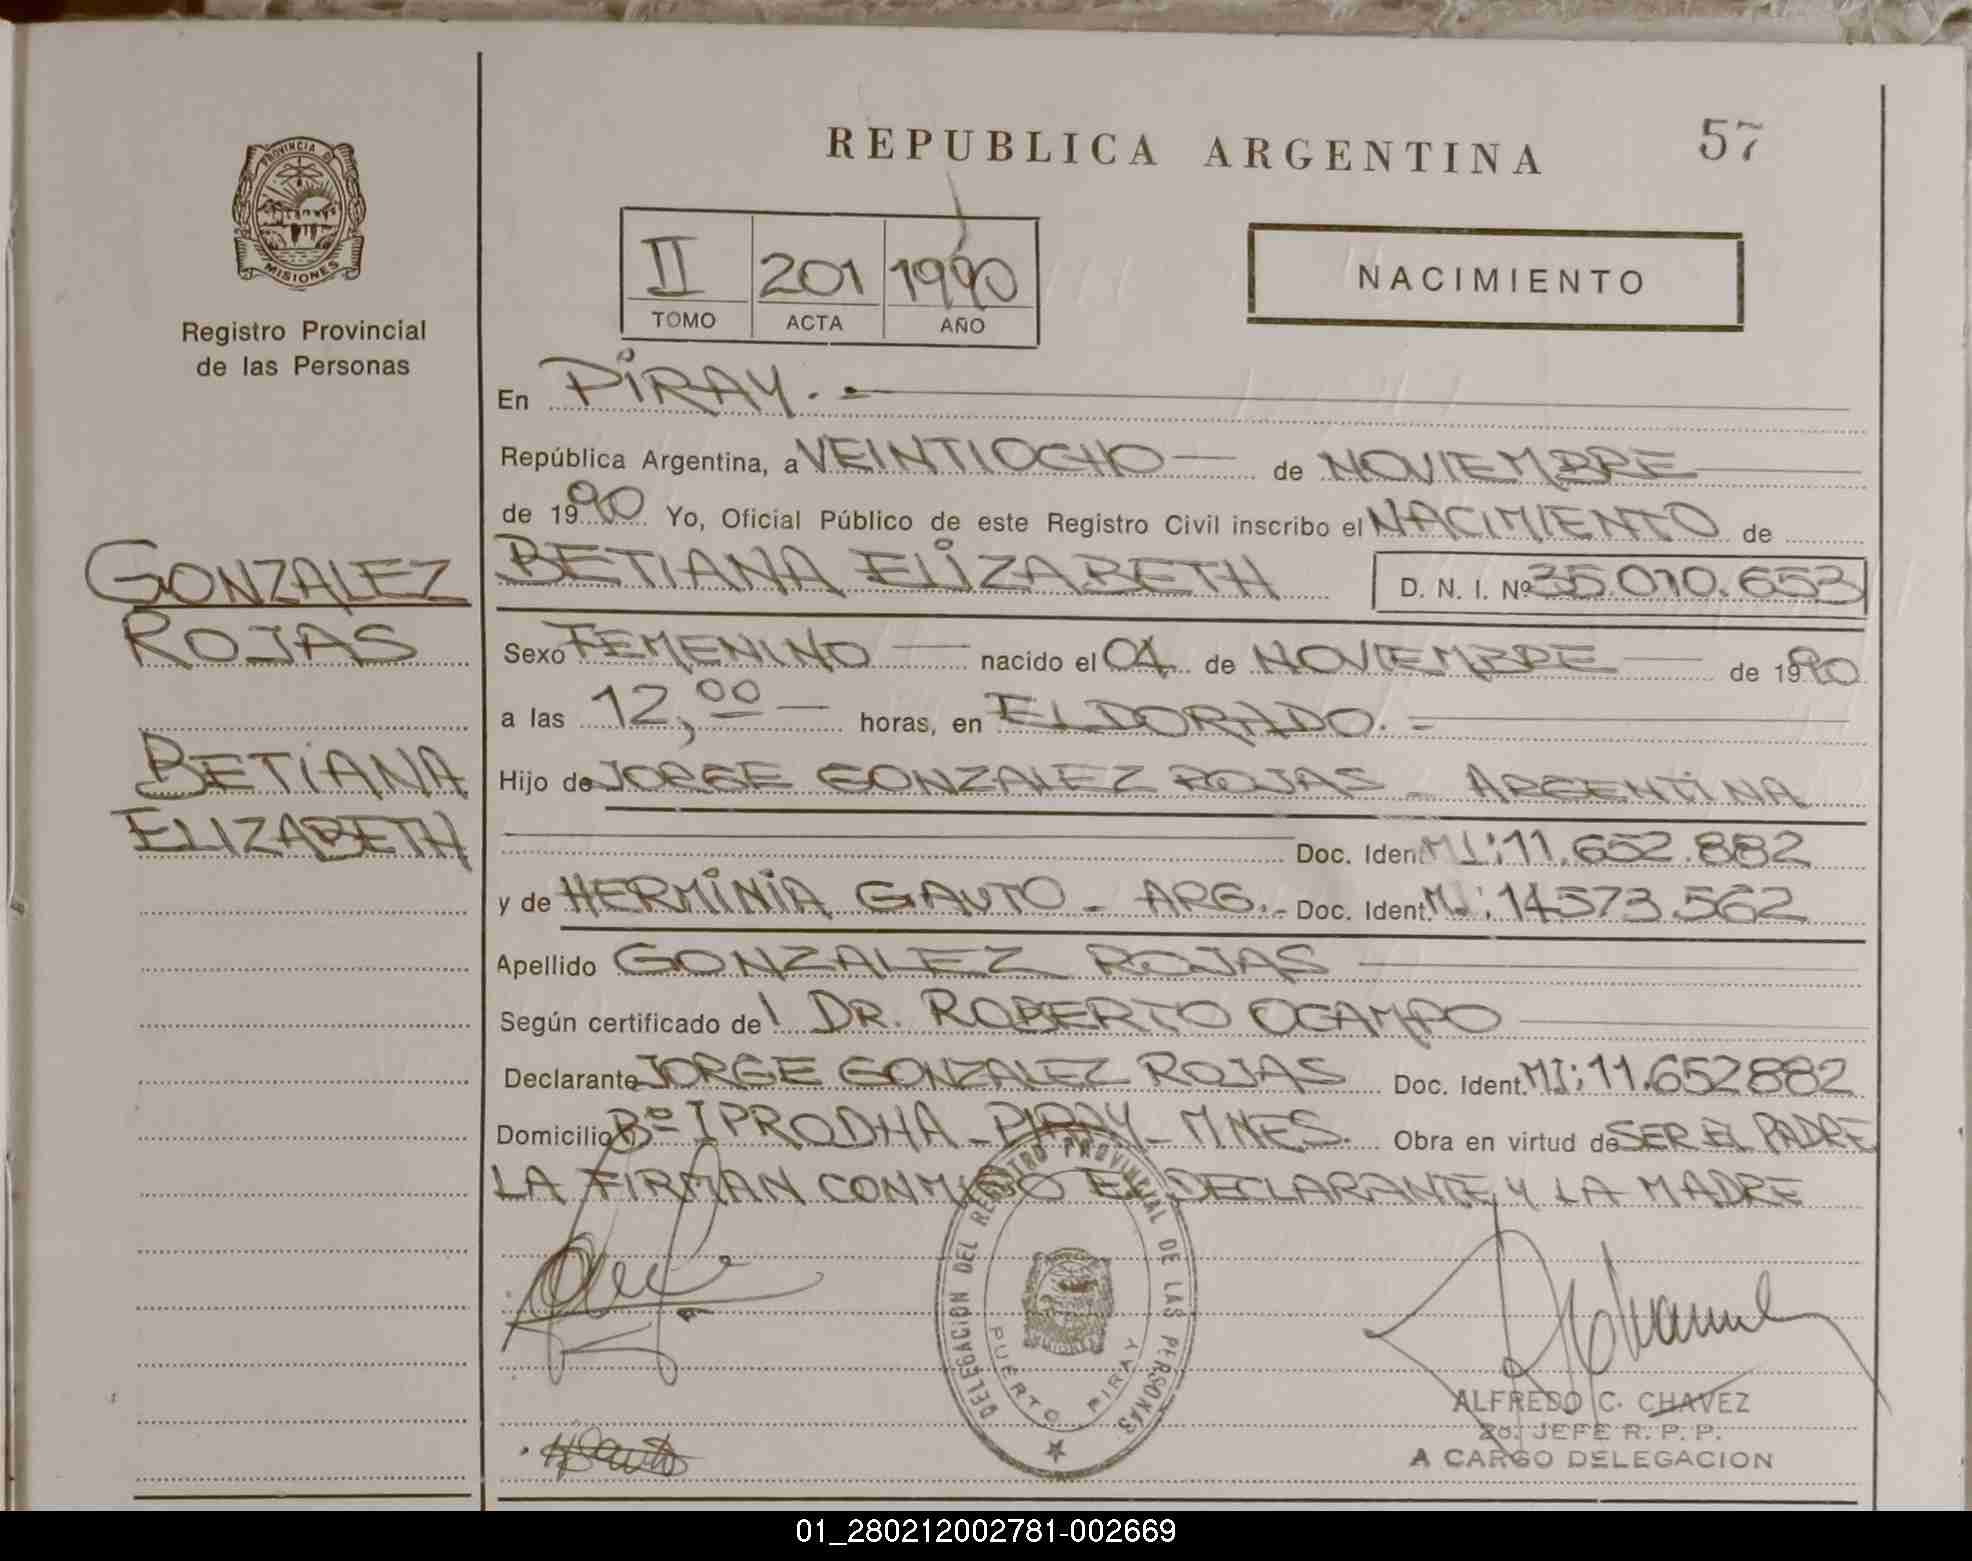 REPUBLICA ARGENTINA
57
PROVINCIA DE
MISIONES
Registro Provincial
de las Personas
II 201 1990
TOMO ACTA AÑO
NACIMIENTO
En PIRAY.
República Argentina, a VEINTIOCHO de NOVIEMBRE
de 1990 Yo, Oficial Público de este Registro Civil inscribo el NACIMIENTO de
GONZALEZ
ROJAS
BETIANA
ELIZABETH
BETIANA ELIZABETH D. N. I. Nº 35.010.653
Sexo FEMENINO nacido el 04 de NOVIEMBRE de 1990
a las 12,00 horas, en ELDORADO. -
Hijo de JORGE GONZALEZ ROJAS - ARGENTINA
Doc. Ident. MI: 11.652.882
y de HERMINIA GAUTO - ARG. - Doc. Ident. MI: 14573.562
Apellido GONZALEZ ROJAS
Según certificado del DR. ROBERTO OCAMPO
Declarante JORGE GONZALEZ ROJAS Doc. Ident. MI: 11.652882
Domicilio Bº IPRODHA - PIRAY - MNES. Obra en virtud de SER EL PADRE
LA FIRMAN CONMIGO EL DECLARANTE Y LA MADRE
DELEGACION DEL REGISTRO PROVINCIAL DE LAS PERSONAS
PUERTO PIRAY
ALFREDO C. CHAVEZ
2o. JEFE R. P. P.
A CARGO DELEGACION
01_280212002781-002669